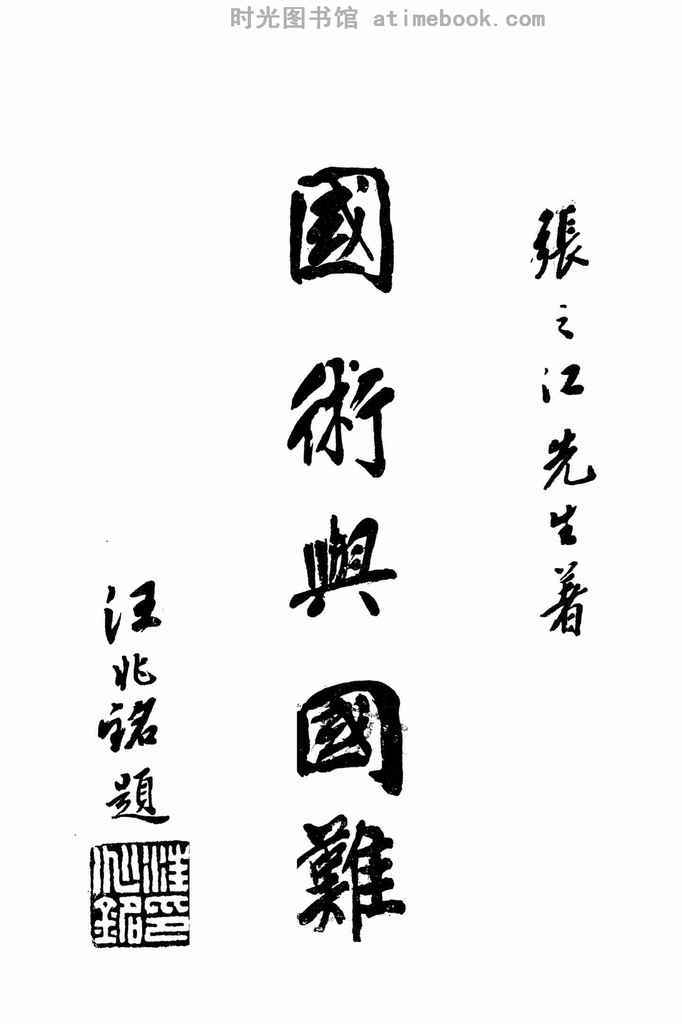 时光图书馆 atimebook.com
張之江先生著
國術與國難
汪兆銘題
汪兆銘印